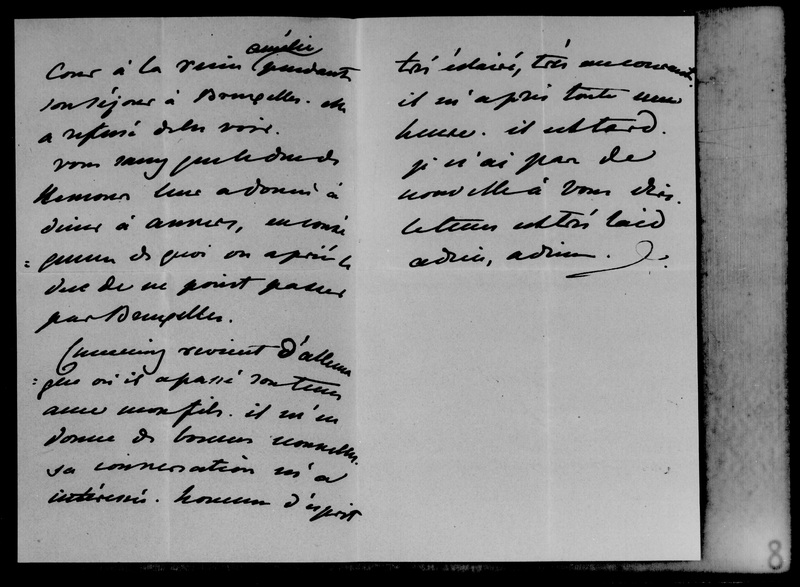 amélie
Cour à la reine pendant
son séjour à Bruxelles. elle
a refusé de les voir.
vous savez que le duc de
Nemours leur a donné à
diner à anvers, en consé
=quence de quoi on a prié le
duc de ne point passer
par Bruxelles.
revient d'allema
=gne où il a passé son tems
avec mon fils. il m'en
donne de bonnes nouvelles.
sa conversation m'a
intéressée. homme d'esprit
très éclairé, très au courant.
il m'a pris toute une
heure. il est tard.
je n'ai pas de
nouvelle à vous dire.
le tems est très laid
adieu, adieu.
8